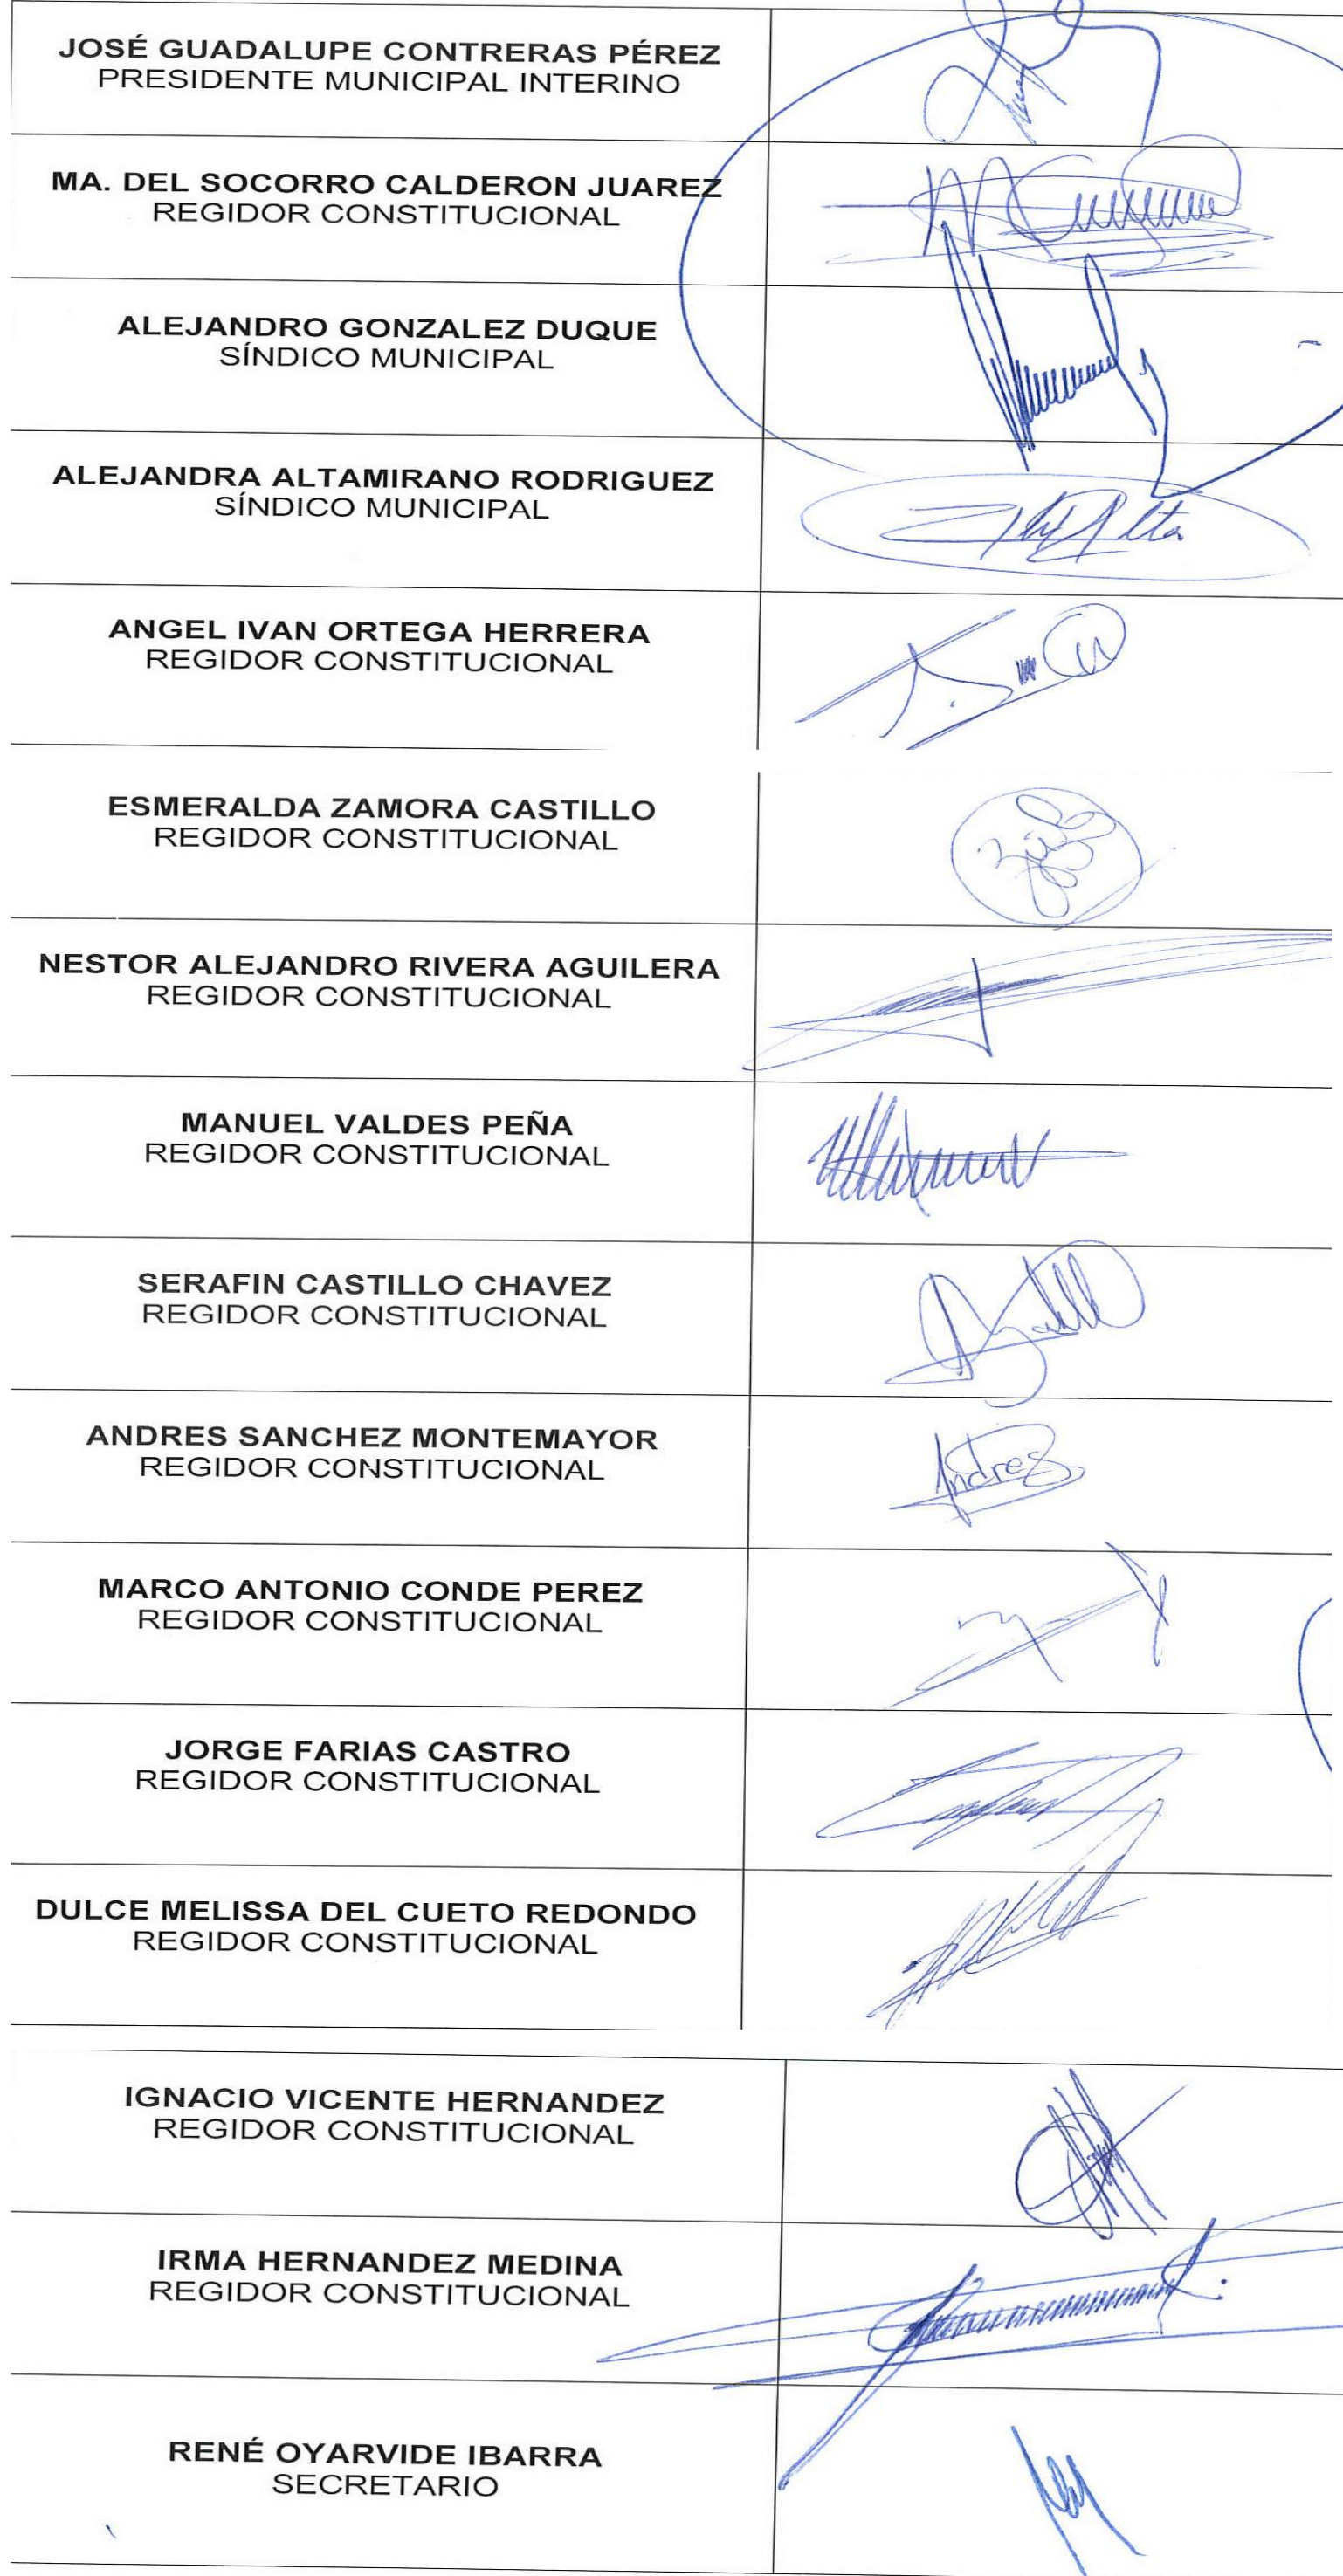 JOSÉ GUADALUPE CONTRERAS PÉREZ
PRESIDENTE MUNICIPAL INTERINO
MA. DEL SOCORRO CALDERON JUAREZ
REGIDOR CONSTITUCIONAL
ALEJANDRO GONZALEZ DUQUE
SÍNDICO MUNICIPAL
ALEJANDRA ALTAMIRANO RODRIGUEZ
SÍNDICO MUNICIPAL
ANGEL IVAN ORTEGA HERRERA
REGIDOR CONSTITUCIONAL
ESMERALDA ZAMORA CASTILLO
REGIDOR CONSTITUCIONAL
NESTOR ALEJANDRO RIVERA AGUILERA
REGIDOR CONSTITUCIONAL
MANUEL VALDES PEÑA
REGIDOR CONSTITUCIONAL
SERAFIN CASTILLO CHAVEZ
REGIDOR CONSTITUCIONAL
ANDRES SANCHEZ MONTEMAYOR
REGIDOR CONSTITUCIONAL
Andres
MARCO ANTONIO CONDE PEREZ
REGIDOR CONSTITUCIONAL
JORGE FARIAS CASTRO
REGIDOR CONSTITUCIONAL
DULCE MELISSA DEL CUETO REDONDO
REGIDOR CONSTITUCIONAL
IGNACIO VICENTE HERNANDEZ
REGIDOR CONSTITUCIONAL
IRMA HERNANDEZ MEDINA
REGIDOR CONSTITUCIONAL
RENÉ OYARVIDE IBARRA
SECRETARIO